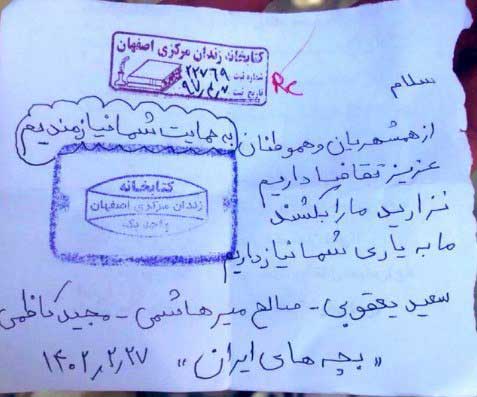 کتابخانه زندان مرکزی اصفهان
شماره ثبت ۲۲۷۶۹
تاریخ ثبت ۹۷/۳/۷
Rc
سلام
از همشهریان و هموطنان به حمایت شما نیازمندیم
عزیز تقاضا داریم
نزارید ما را بکشند
ما به یاری شما نیاز داریم
کتابخانه
زندان مرکزی اصفهان
واحد یک
سعید یعقوبی - صالح میرهاشمی - مجید کاظمی
«بچه های ایران» ۱۴۰۲٫۲٫۲۷